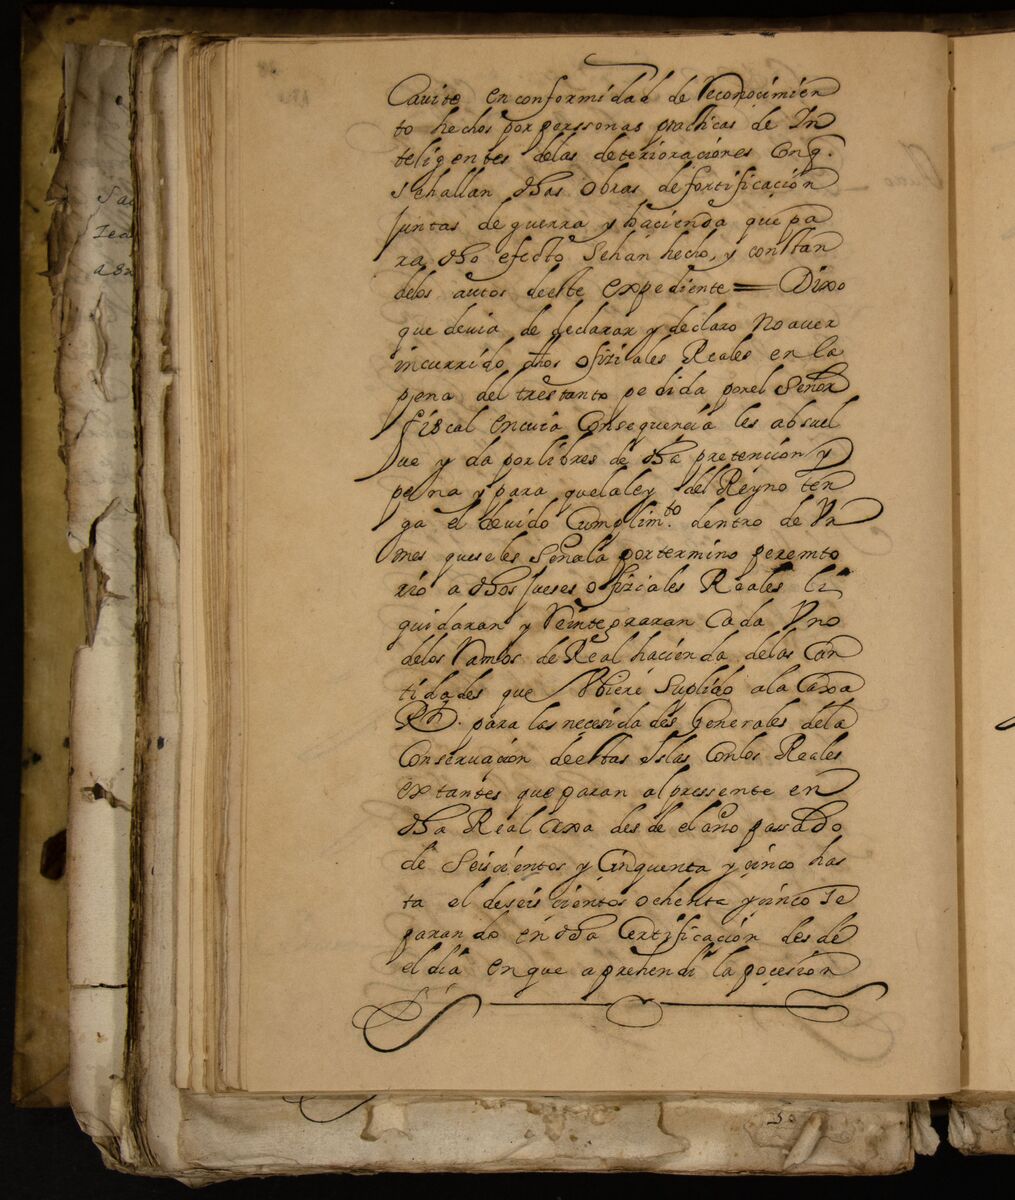 Cauite en conformidad de Reconocimien
to hechos por perssonas practicas de In
teligentes delas deterioraciones Conq.
sehallan dhas Obras defortificación
Juntas de guerra y hacienda que pa
ra dho efecto sehan hecho, y constan
delos autos deeste expediente = Dixo
que deuia de declarar y declaro No auer
incurrido dhos ofiziales Reales en la
pena del trestanto pedida porel Señor
fiscal encuia Consequencia les absuel
ue y da porlibres de dha pretencion y
pena y para quelaley del Reyno ten
ga el deuido Cumplimto. dentro de Vn
mes queseles Señala portermino peremto
rio a dhos Jueses ofiziales Reales li
quidaran y Reintegraran Cada Vno
delos Ramos de Real hacienda delas Can
tidades que Vbiere Suplido ala Caxa
Rl. para las necesidades Generales dela
Conseruación deestas Yslas Conlos Reales
extantes queparan alpressente en
dha Real Caxa desde elaño passado
de Seiscientos y Cinquenta y cinco has
ta el deseiscientos ochenta ycinco Se
parando en dha Certificación desde
eldia enque aprehendi la pocesion
Sa
Tea